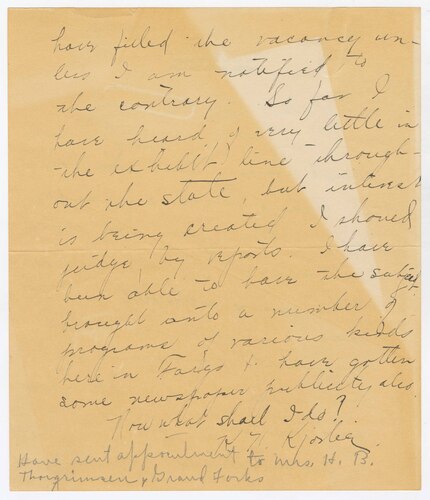 have filled the vacancy un-
less I am notified to
the contrary. So far I
have heard of very little in
the exhibit line through-
out the state, but interest
is being created I should
judge, by reports. I have
been able to have the subject
brought onto a number of
programs of various kinds
here in Fargo & have gotten
some newspaper publicity also.
Now what shall I do?
Kjorlie
Have sent appointment to Mrs. H. B.
Thorgrimsen, Grand Forks